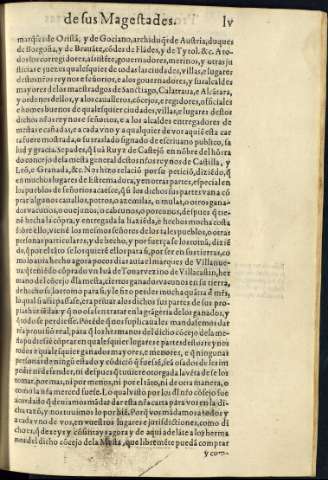 de sus Magestades. lv
marq̃ses de Oristã, y de Gociano, archiduq̃s de Austria, duques
de Borgoña, y de Brauãte, cõdes de Flãdes, y de Tyrol. &c. A to-
dos los corregidores, assistẽte, gouernadores, merinos, y otras ju
sticias e juezes qualesquier de todas las ciudades, villas, e lugares
destos nr̃os reynos e señorios, e a los gouernadores, e alcaldes
mayores de los maestradgos de Sanctiago, Calatraua, e Alcãtara,
y ordenes dellos, y a los caualleros, cõcejos, e regidores, officiales
e homes buenos de qualesquier ciudades, villas, e lugares destos
dichos nr̃os reynos e señorios, e a los alcaldes entregadores de
mestas e cañadas, e a cada vno y a qualquier de vos a quiẽ esta car
ta fuere mostrada, o su traslado signado de escriuano publico, sa
lud y gracia. Sepades, q̃ Luis Ruy de Castejõ en nõbre del hõrra
do concejo dela mesta general destos nr̃os reynos de Castilla, y
Leõ, e Granada, &c. Nos hizo relaciõ por su peticiõ, diziẽdo, q̃
en muchos lugares de Estremadura, y en otras partes, especial en
los pueblos de señorios acaesce, que si los dichos sus partes van a cõ
prar algunos cauallos, potros, o azemilas, o mulas, o otros gana-
dos vacunos, o ouejunos, o cabrunos, o porcunos, despues q̃ tie-
nẽ hecha la cõpra, y entregada la haziẽda, e hechos mucha costa
sobre ello, vienẽ los mesmos señores de los tales pueblos, o otras
personas particulares, y de hecho, y por fuerça se los tomã, diziẽ
do, que por el tãto se los quierẽ ellos para si, por ser en sus tierras, co
mo lo auia hecho agora pocos dias auia el marques de Villanue-
ua
mano del cõcejo dla mesta, ciertos ganados vacunos en su tierra,
de hecho se los tomo para si, y le hizo perder mucha quãtia d̃ mr̃s,
lo qual si assi passasse, era
 q̃ no osassen tratar en la grãgeria delos ganados, y
q̃ todo se perdiesse. Põr ẽde q̃ nos suplicaua les mandassemos dar
nr̃a prouisiõ real, para q̃ los hermanos del dicho cõcejo dela me-
sta pudiessẽ cõprar en qualesquier lugares e partes destos reynos
todos e qualesquier ganados mayores, e menores, e q̃ ninguna
persona de ningũ estado y cõdiciõ q̃ fuesse, fuessẽ osados de les im
pedir ni defender, ni despues q̃ tuuiesse otorgada la vẽta de se los
tomar, por mas, ni por menos, ni por el tãto, ni de otra manera, o
como la nr̃a merced fuesse. Lo qual visto por los del nr̃o cõsejo fue
acordado q̃ deuiamos mãdar dar esta nr̃a carta para vos en la di-
cha razõ, y nos tuuimos lo por biẽ. Porq̃ vos mãdamos a todos y
a cada vno de vos, en vuestros lugares y jurisdictiones, como di
cho es, q̃ dexeys y cõsintays agora y de aqui adelãte a los herma
nos del dicho cõcejo dela Mesta, que libremẽte pueda comprar
y con-